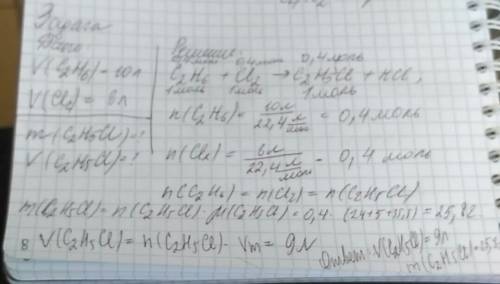 Задача
Дано
V(C2H6) - 10л
V(Cl2) = 8л
m(C2H5Cl)-?
V(C2H5Cl)-?
Решение:
0,4моль 0,4моль
C2H6 + Cl2 → C2H5Cl + HCl;
1моль 1моль 1моль
n(C2H6) = 10л / 22,4 л/моль = 0,4 моль
n(Cl2) = 8л / 22,4 л/моль = 0,4 моль
n(C2H6) = n(Cl2) = n(C2H5Cl)
m(C2H5Cl) = n(C2H5Cl) · M(C2H5Cl) = 0,4 · (24+5+35,5) = 25,8г
8 V(C2H5Cl) = n(C2H5Cl) · Vm = 9л
Ответ: V(C2H5Cl) = 9л
m(C2H5Cl) = 25,